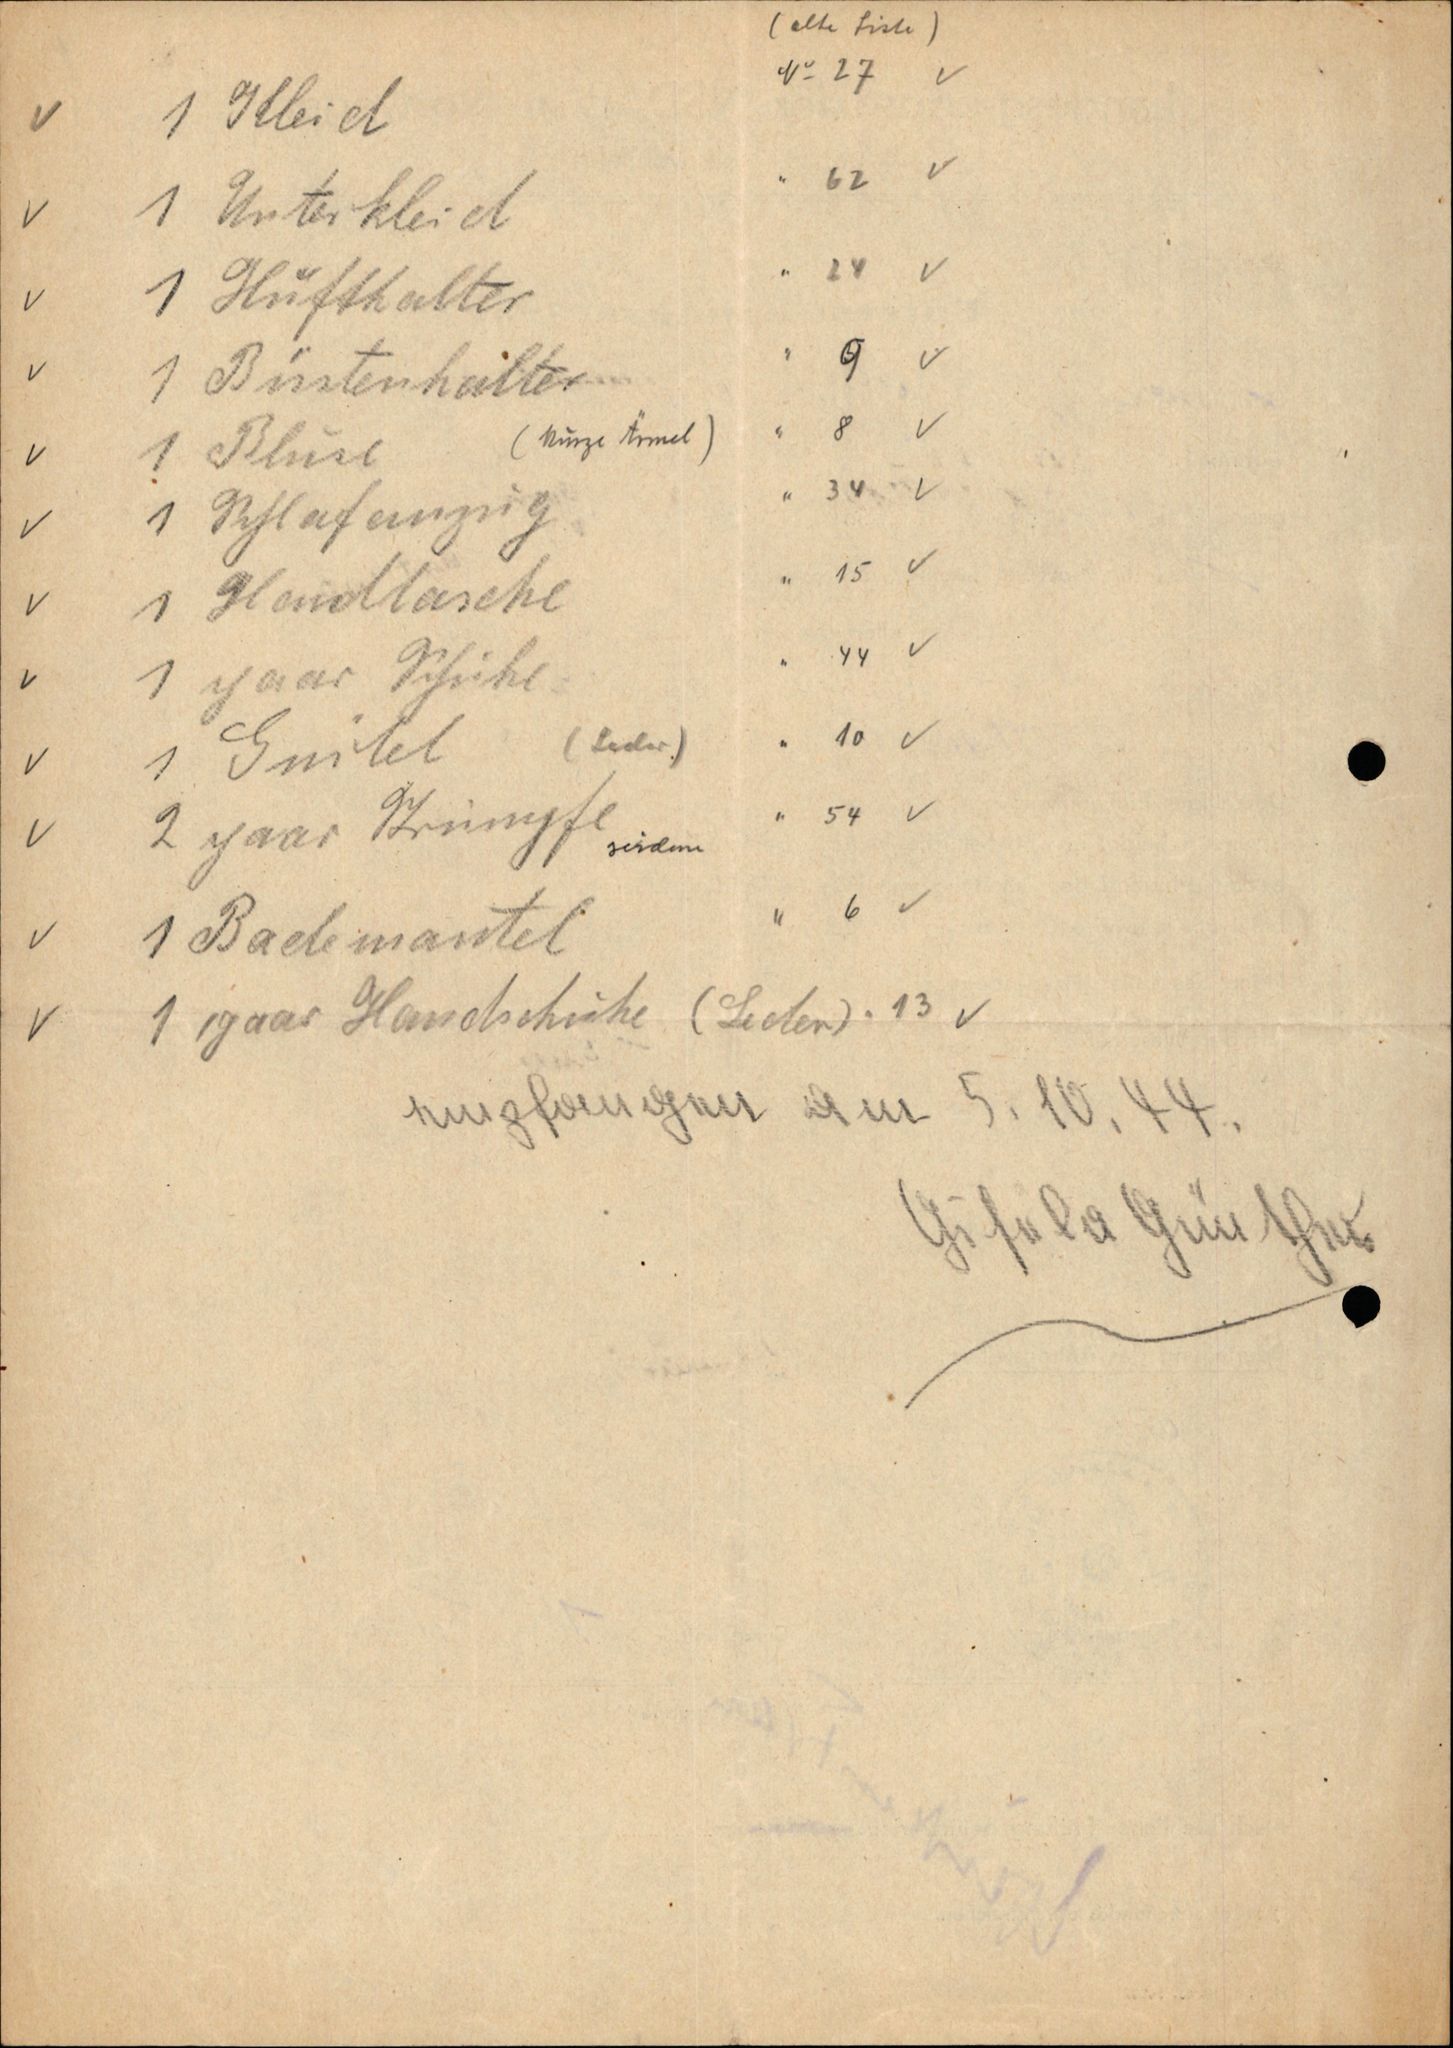 (alte Liste)
✓ 1 Kleid No 27 ✓
✓ 1 Unterkleid " 62 ✓
✓ 1 Hüfthalter " 24 ✓
✓ 1 Büstenhalter " 9 ✓
✓ 1 Bluse (kurze Ärmel) " 8 ✓
✓ 1 Schlafanzug " 34 ✓
✓ 1 Handtasche " 15 ✓
✓ 1 paar Schuhe " 44 ✓
✓ 1 Gürtel (Leder) " 10 ✓
✓ 2 paar Strümpfe seidene " 54 ✓
✓ 1 Bademantel " 6 ✓
✓ 1 paar Handschuhe (Leder) " 13 ✓
empfangen am 5. 10. 44.
Gisela Günther